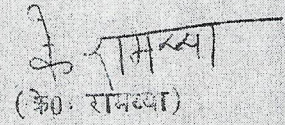 के रामय्या
(के0: रामय्या)